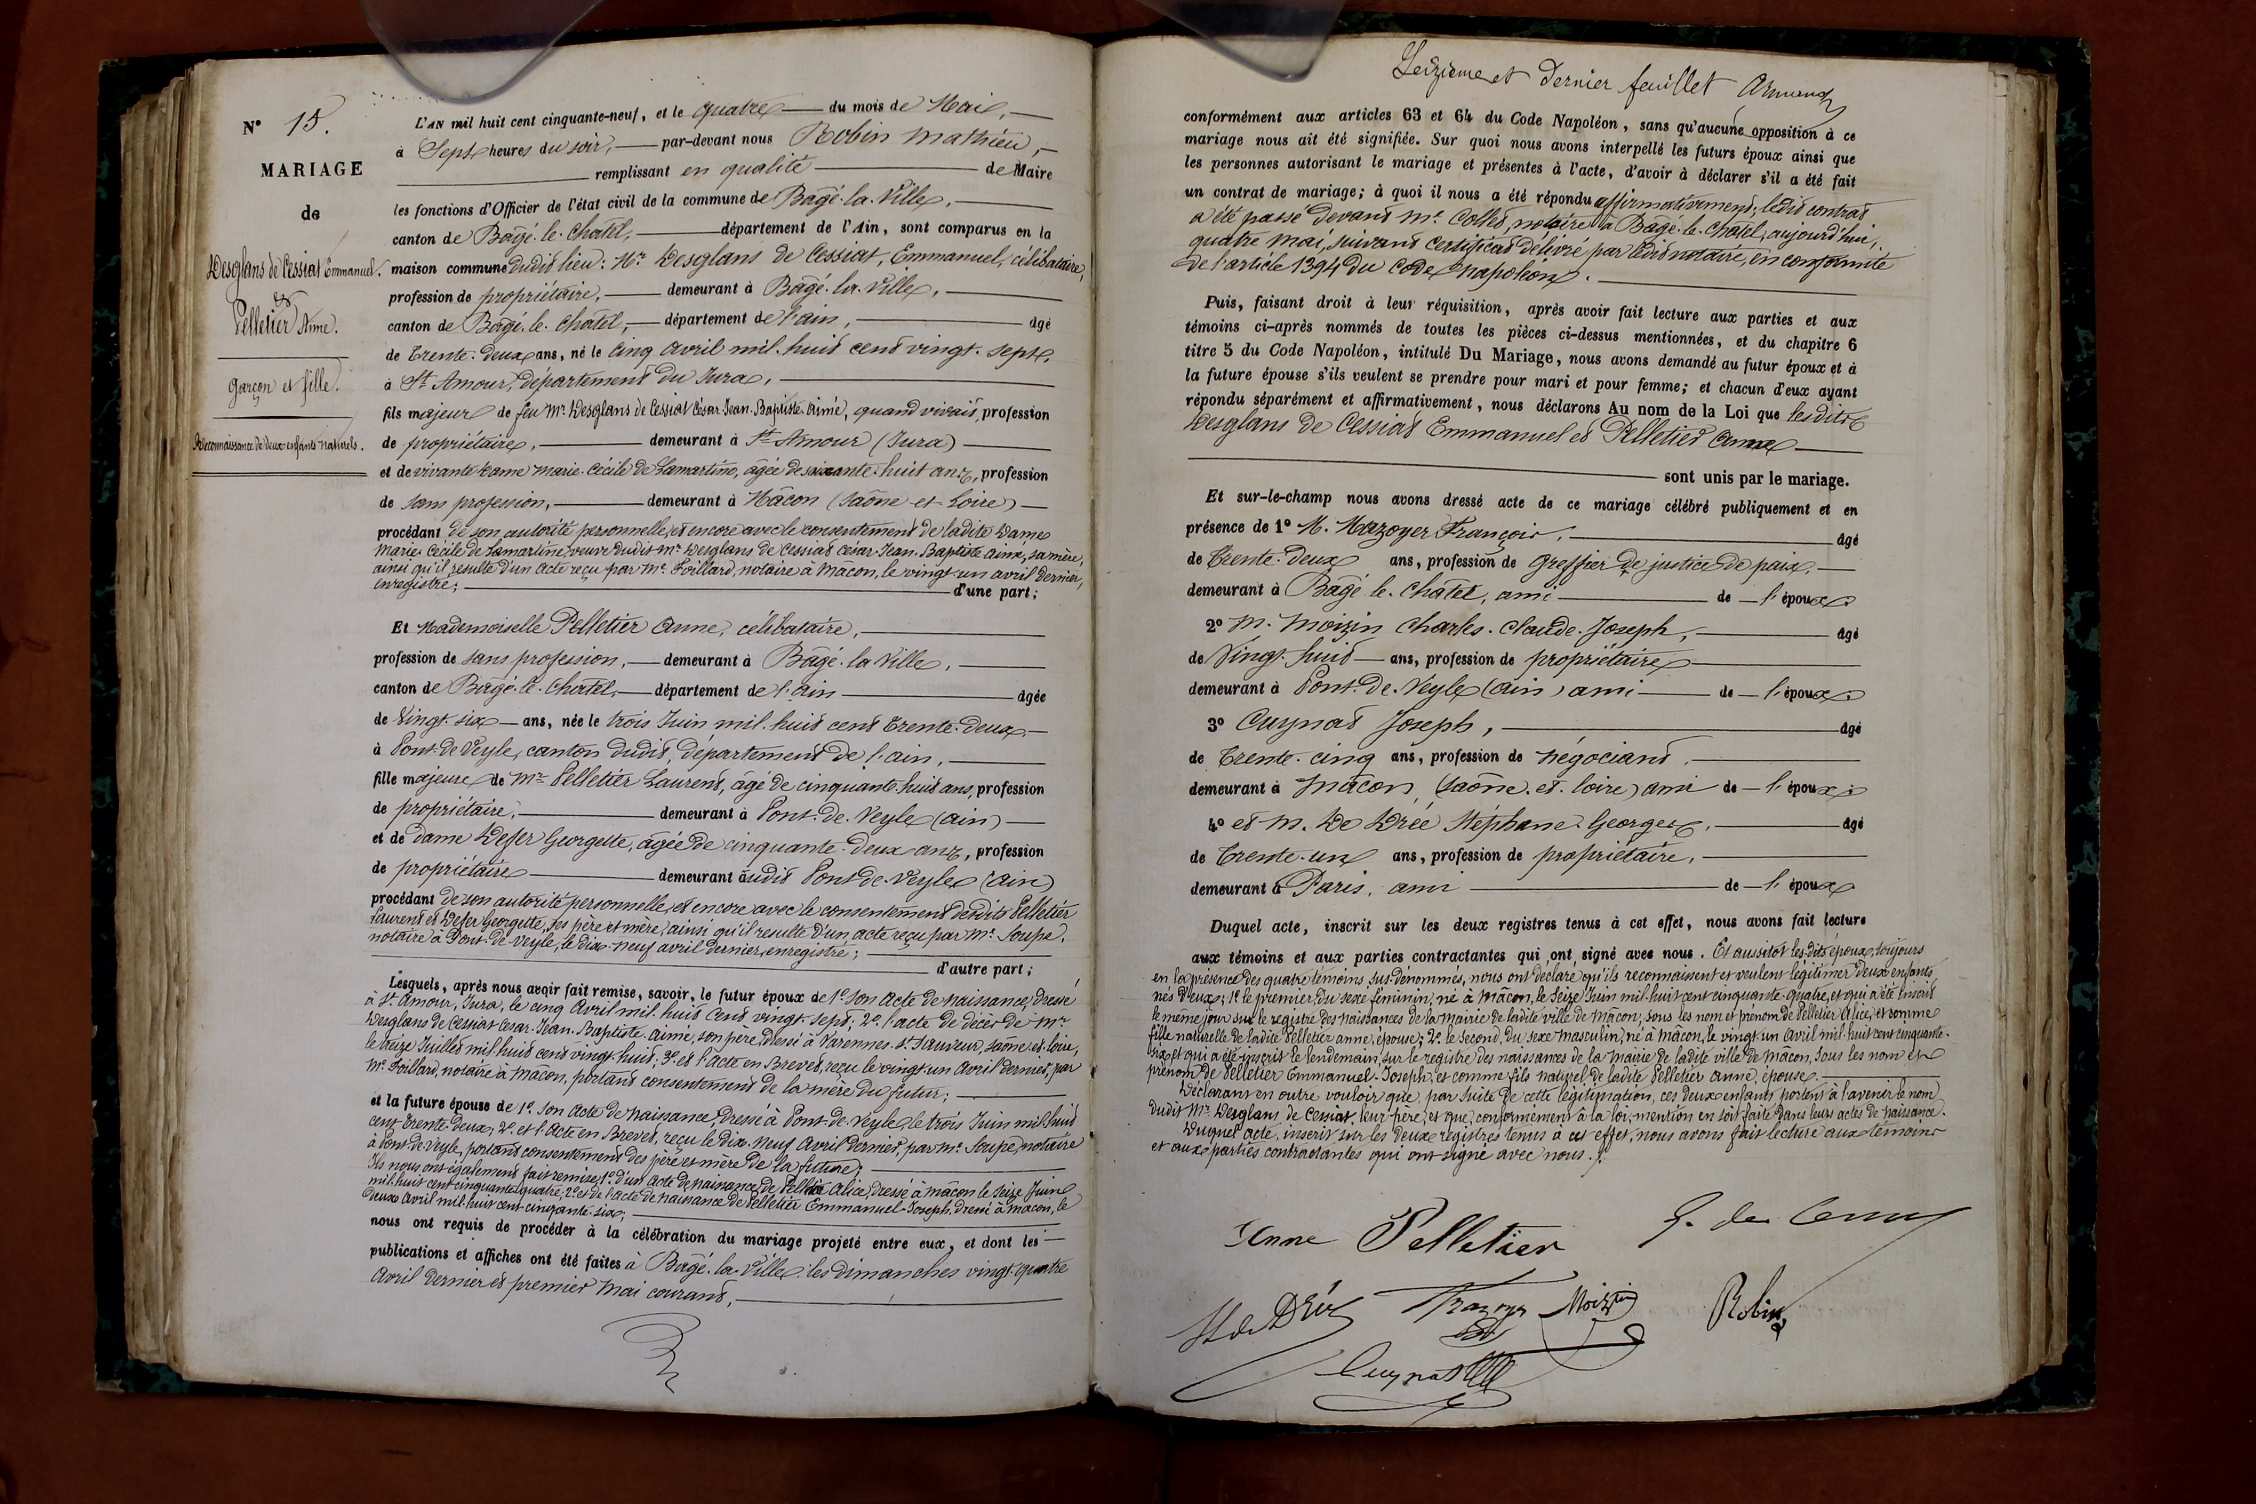 N° 15.
MARIAGE
de
Desglans de Cessiat Emmanuel.
et
Pelletier Anne.
Garçon et fille.
Reconnaissance de deux enfants naturels.
L'AN mil huit cent cinquante-neuf, et le quatre du mois de Mai,
à Sept heures du soir, par-devant nous Robin Mathieu,
remplissant en qualité de Maire
les fonctions d'Officier de l'état civil de la commune de Bâgé-la-Ville,
canton de Bâgé-le-Châtel, département de l'Ain, sont comparus en la
maison commune dudit lieu: Mr Desglans de Cessiat, Emmanuel, célibataire,
profession de propriétaire, demeurant à Bâgé-la-Ville,
canton de Bâgé-le-Châtel, département de l'ain, âgé
de trente-deux ans, né le cinq avril mil-huit cent vingt-sept,
à St Amour, département du Jura,
fils majeur de feu Mr Desglans de Cessiat César-Jean-Baptiste-Aimé, quand vivait, profession
de propriétaire, demeurant à St Amour (Jura)
et de vivante Dame Marie-Cécile de Lamartine, âgée de soixante-huit ans, profession
de sans profession, demeurant à Mâcon (Saône et Loire)
procédant de son autorité personnelle, et encore avec le consentement de ladite Dame
Marie-Cécile de Lamartine, veuve dudit Mr Desglans de Cessiat César-Jean-Baptiste aimé, sa mère,
ainsi qu'il résulte d'un acte reçu par Me Foillard, notaire à Mâcon, le vingt-un avril dernier,
enregistré; d'une part;
Et Mademoiselle Pelletier Anne, célibataire,
profession de sans profession, demeurant à Bâgé-la-Ville,
canton de Bâgé-le-Châtel, département de l'ain âgée
de vingt-six ans, née le trois Juin mil-huit cent trente-deux
à Pont-de-Veyle, canton dudit, département de l'ain,
fille majeure de Mr Pelletier Laurent, âgé de cinquante-huit ans, profession
de propriétaire, demeurant à Pont-de-Veyle (ain)
et de dame Defer Georgette, âgée de cinquante-deux ans, profession
de propriétaire demeurant audit Pont-de-Veyle (ain)
procédant de son autorité personnelle, et encore avec le consentement desdits Pelletier
Laurent et Defer Georgette, ses père et mère, ainsi qu'il résulte d'un acte reçu par Me Soupe,
notaire à Pont-de-Veyle, le dix-neuf avril dernier, enregistré;
d'autre part;
Lesquels, après nous avoir fait remise, savoir, le futur époux de 1° son acte de naissance, dressé
à St Amour, Jura, le cinq Avril mil-huit cent vingt-sept; 2° l'acte de décès de Mr
Desglans de Cessiat César-Jean-Baptiste aimé, son père, dressé à Varennes-St-Sauveur, Saône-et-Loire,
le treize Juillet mil huit cent vingt-huit; 3° et l'acte en Brevet, reçu le vingt-un avril dernier, par
Me Foillard, notaire à Mâcon, portant consentement de la mère du futur;
et la future épouse de 1° son acte de naissance, dressé à Pont-de-Veyle, le trois Juin mil-huit
cent trente-deux; 2° et l'acte en Brevet, reçu le dix-neuf avril dernier, par Me Soupe, notaire
à Pont-de-Veyle, portant consentement des père et mère de la future;
Ils nous ont également fait remise; 1° d'un acte de naissance de Pelletier Alice, dressé à Mâcon le seize Juin
mil-huit cent cinquante-quatre; 2° et de l'acte de naissance de Pelletier Emmanuel-Joseph, dressé à Mâcon, le
deux avril mil-huit cent cinquante-six;
nous ont requis de procéder à la célébration du mariage projeté entre eux, et dont les
publications et affiches ont été faites à Bâgé-la-Ville, les dimanches vingt-quatre
avril dernier et premier mai courant,
Seizième et dernier feuillet
conformément aux articles 63 et 64 du Code Napoléon, sans qu'aucune opposition à ce
mariage nous ait été signifiée. Sur quoi nous avons interpellé les futurs époux ainsi que
les personnes autorisant le mariage et présentes à l'acte, d'avoir à déclarer s'il a été fait
un contrat de mariage; à quoi il nous a été répondu affirmativement; ledit contrat
a été passé devant Me notaire à Bâgé-le-Châtel, aujourd'hui,
quatre mai, suivant certificat délivré par ledit notaire, en conformité
de l'article 1394 du Code Napoléon.
Puis, faisant droit à leur réquisition, après avoir fait lecture aux parties et aux
témoins ci-après nommés de toutes les pièces ci-dessus mentionnées, et du chapitre 6
titre 5 du Code Napoléon, intitulé Du Mariage, nous avons demandé au futur époux et à
la future épouse s'ils veulent se prendre pour mari et pour femme; et chacun d'eux ayant
répondu séparément et affirmativement, nous déclarons Au nom de la Loi que lesdits
Desglans de Cessiat Emmanuel et Pelletier Anne
sont unis par le mariage.
Et sur-le-champ nous avons dressé acte de ce mariage célébré publiquement et en
présence de 1° M. Mazoyer François, âgé
de trente-deux ans, profession de greffier de justice de paix,
demeurant à Bâgé-le-Châtel, ami de l'époux;
2° M. Moizin Charles-Claude-Joseph, âgé
de vingt-huit ans, profession de propriétaire
demeurant à Pont-de-Veyle (ain) ami de l'époux;
3° Cuynat Joseph, âgé
de trente-cinq ans, profession de négociant,
demeurant à Mâcon, (Saône-et-Loire) ami de l'époux;
4° et M. De Drée Stéphane-Georges, âgé
de trente-un ans, profession de propriétaire,
demeurant à Paris, ami de l'époux
Duquel acte, inscrit sur les deux registres tenus à cet effet, nous avons fait lecture
aux témoins et aux parties contractantes qui ont signé avec nous. Et aussitôt lesdits époux, toujours
en la présence des quatre témoins sus-dénommés, nous ont déclaré qu'ils reconnaissent et veulent légitimer deux enfants
nés d'eux; 1° le premier, du sexe féminin, né à Mâcon, le seize Juin mil-huit cent cinquante-quatre, et qui a été inscrit
le même jour sur le registre des naissances de la mairie de ladite ville de Mâcon, sous les nom et prénom de Pelletier Alice, et comme
fille naturelle de ladite Pelletier Anne, épouse; 2° le second, du sexe masculin, né à Mâcon, le vingt-un avril mil-huit cent cinquante-
six, et qui a été inscrit le lendemain, sur le registre des naissances de la mairie de ladite ville de Mâcon, sous les nom et
prénom de Pelletier Emmanuel-Joseph, et comme fils naturel de ladite Pelletier Anne, épouse.
Déclarant en outre vouloir que, par suite de cette légitimation, ces deux enfants portent à l'avenir le nom
dudit Mr Desglans de Cessiat, leur père, et que, conformément à la loi, mention en soit faite dans leurs actes de naissance.
Duquel acte, inscrit sur les deux registres tenus à cet effet, nous avons fait lecture aux témoins
et aux parties contractantes qui ont signé avec nous.
Anne Pelletier
St de Drée Mazoyer Moizin Robin
Cuynat